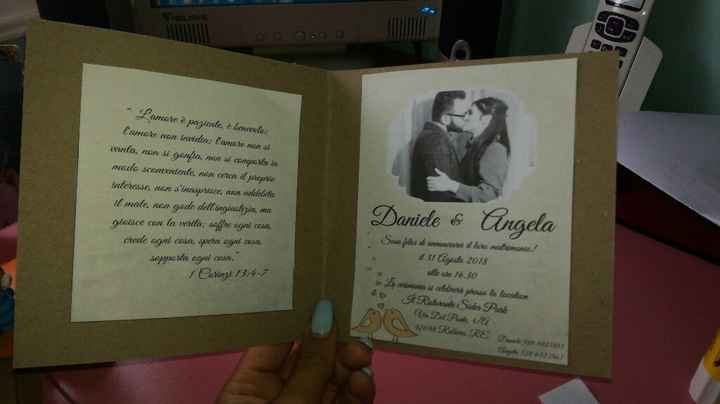 " L'amore è paziente, è benevolo;
l'amore non invidia; l'amore non si
vanta, non si gonfia, non si comporta in
modo sconveniente, non cerca il proprio
interesse, non s'inasprisce, non addebita
il male, non gode dell'ingiustizia, ma
gioisce con la verità; soffre ogni cosa,
crede ogni cosa, spera ogni cosa,
sopporta ogni cosa."
1 Corinzi 13:4-7
Daniele & Angela
Sono felici di annunciare il loro matrimonio!
il 31 Agosto 2018
alle ore 16.30
La cerimonia si celebrerà presso la location
Il Ristorante Sider Park
Via Del Ponte, 1/A
Rubiera, RE
Daniele
Angela